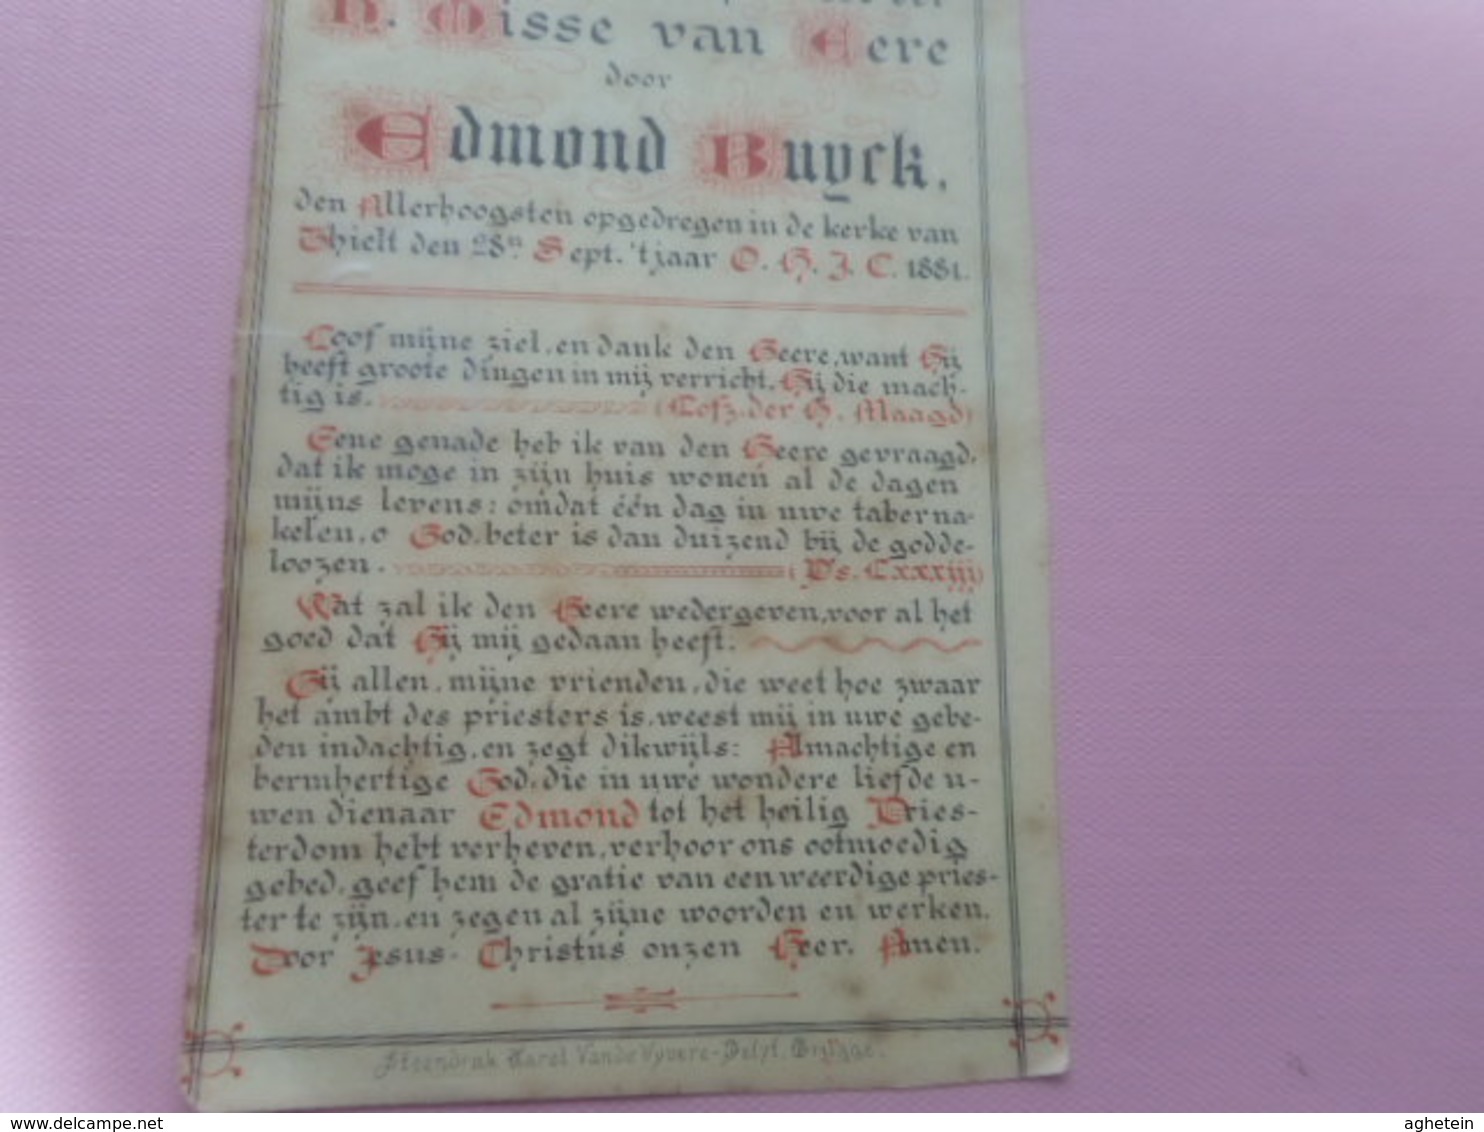 H. Misse van Eere
door
Edmond Buyck,
den Allerhoogsten opgedregen in de kerke van
Thielt den 28n Sept. 't jaar O. H. J. C. 1881.
Loof mijne ziel, en dank den Heere, want Hij
heeft groote dingen in mij verricht, Hij die mach-
tig is. (Lofz. der H. Maagd)
Eene genade heb ik van den Heere gevraagd,
dat ik moge in zijn huis wonen al de dagen
mijns levens: omdat één dag in uwe taberna-
kelen, o God, beter is dan duizend bij de godde-
loozen. (Ps. Lxxxiij)
Wat zal ik den Heere wedergeven, voor al het
goed dat Hij mij gedaan heeft.
Gij allen, mijne vrienden, die weet hoe zwaar
het ambt des priesters is, weest mij in uwe gebe-
den indachtig, en zegt dikwijls: Almachtige en
bermhertige God, die in uwe wondere liefde u-
wen dienaar Edmond tot het heilig Pries-
terdom hebt verheven, verhoor ons ootmoedig
gebed, geef hem de gratie van een weerdige pries-
ter te zijn, en zegen al zijne woorden en werken.
Door Jesus-Christus onzen Heer. Amen.
Steendruk Karel Van de Vyvere-Petyt, Brugge.
www.delcampe.net
aghetein